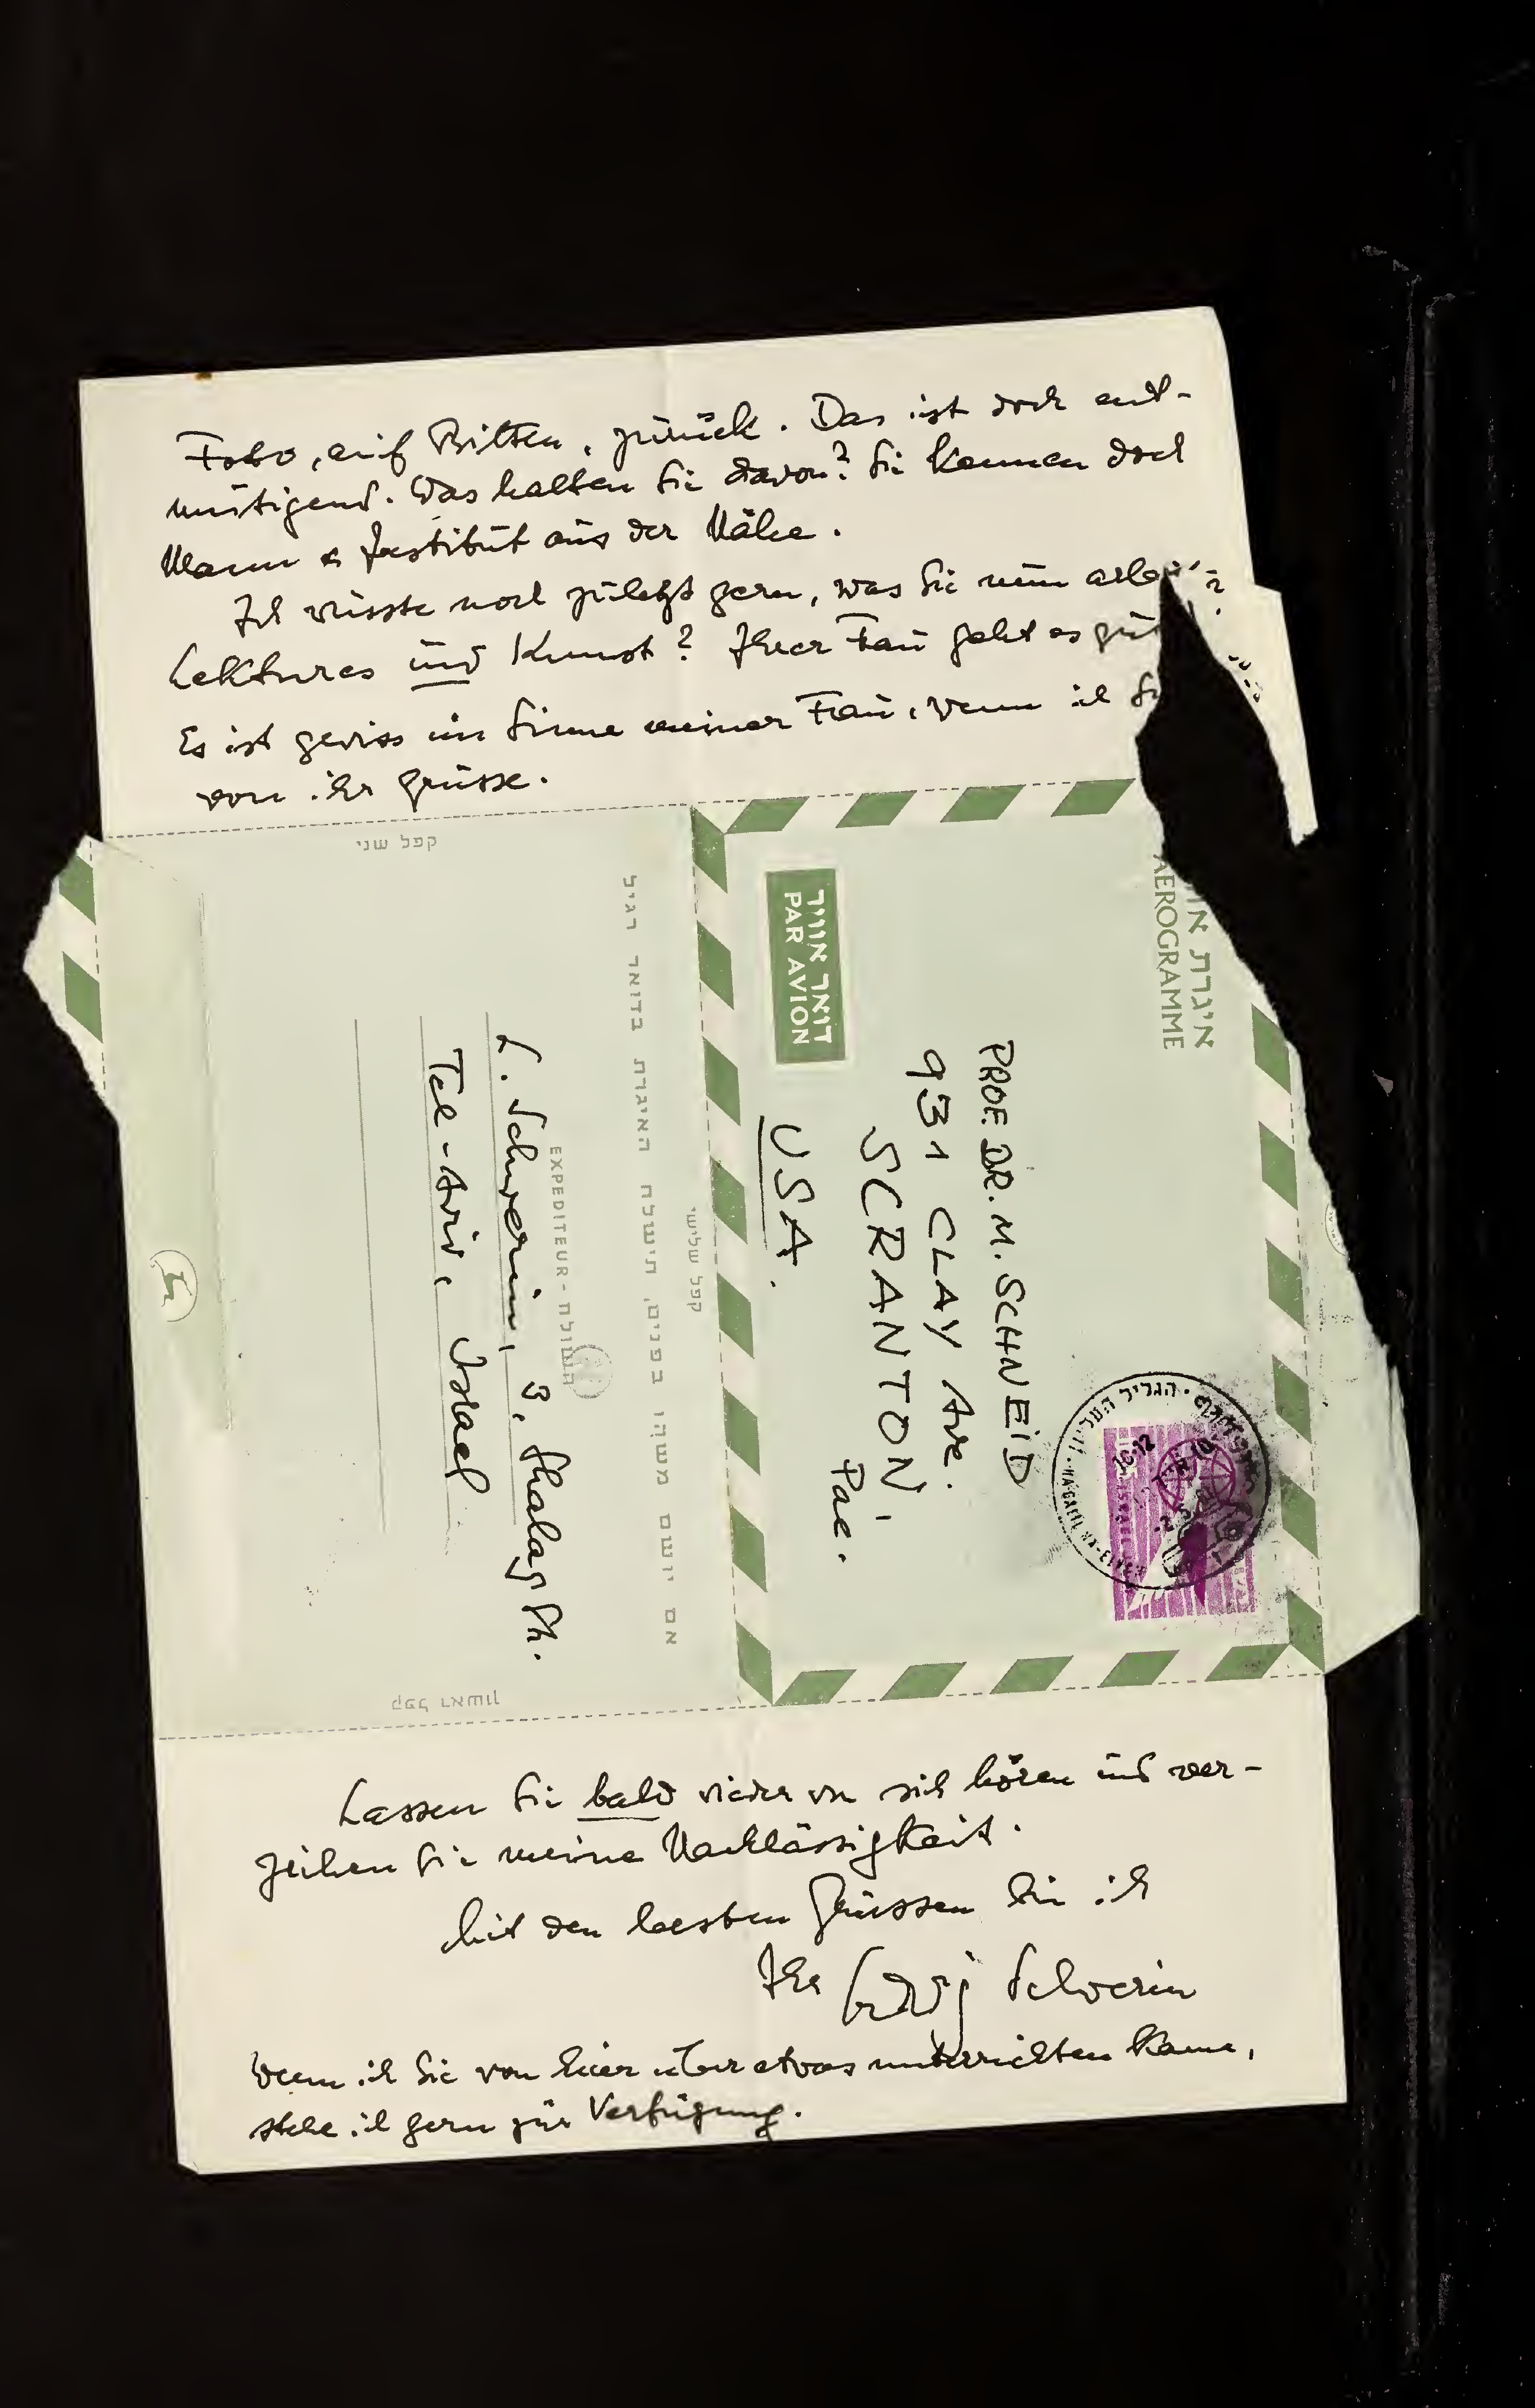 Foto, auf Bitten, zurück. Das ist doch ent-
mutigend. Was halten Sie davon? Sie kennen doch
Mann & Institut aus der Nähe.
Ich wüsste noch zuletzt gern, was Sie nun
Lektures und Kunst? Ihrer Frau geht es gut
Es ist gewiss im Sinne meiner Frau, wenn ich Sie
von ihr grüsse.
קפל שני
איגרת
AEROGRAMME
דואר אוויר
PAR AVION
PROF. DR. M. SCHNEID
931 CLAY Ave.
SCRANTON,
Pae.
USA.
קפל שלישי
אם יושם משהו בפנים, תישלח האיגרת בדואר רגיל
EXPEDITEUR - השולח
L. Schwerin, 3, Shalag Ph.
Tel-Aviv, Israel
קפל ראשון
Lassen Sie bald wieder von sich hören und ver-
zeihen Sie meine Nachlässigkeit.
Mit den besten Grüssen bin ich
Ihr Ludwig Schwerin
Wenn ich Sie von hier über etwas unterrichten kann,
stehe ich gern zur Verfügung.